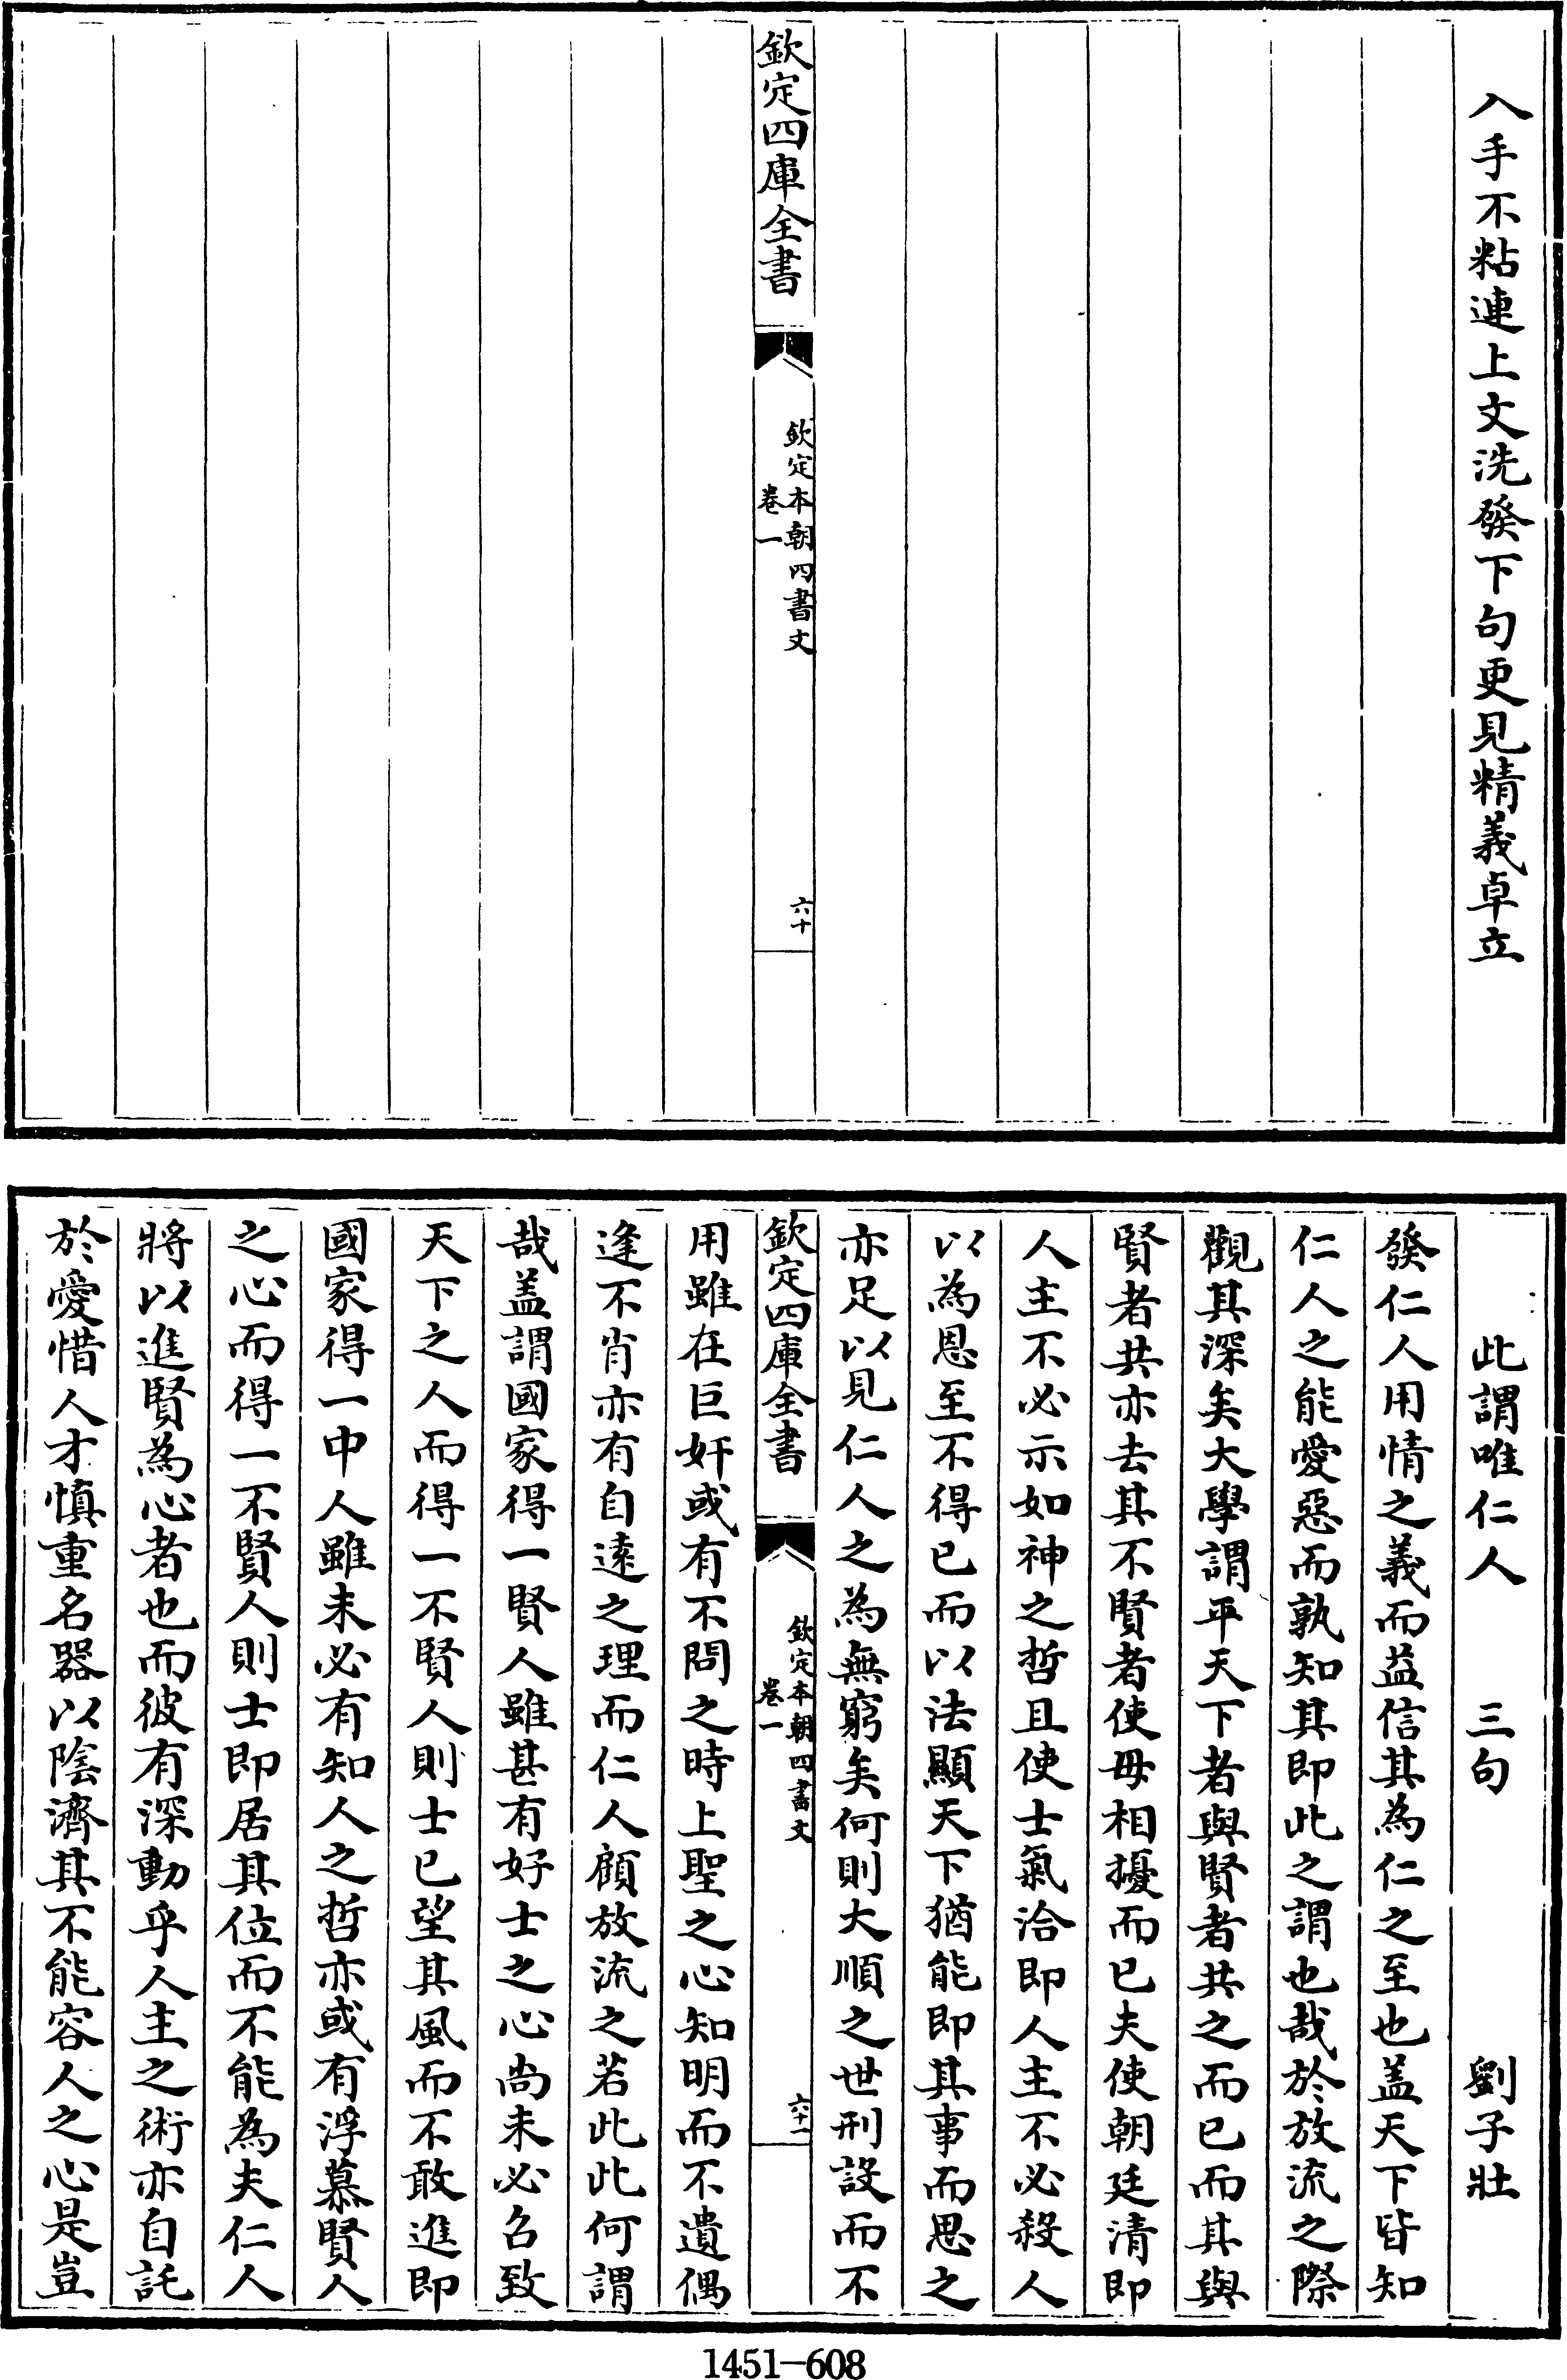 入手不粘連上文洗發下句更見精義卓立
欽定四庫全書
欽定本朝四書文
卷一
六十
此謂唯仁人　三句　劉子壯
發仁人用情之義而益信其為仁之至也盖天下皆知
仁人之能愛惡而孰知其即此之謂也哉於放流之際
觀其深矣大學謂平天下者與賢者共之而已而其與
賢者共亦去其不賢者使毋相擾而已夫使朝廷清即
人主不必示如神之哲且使士氣洽即人主不必殺人
以為恩至不得已而以法顯天下猶能即其事而思之
亦足以見仁人之為無窮矣何則大順之世刑設而不
欽定四庫全書
欽定本朝四書文
卷一
六十一
用雖在巨奸或有不問之時上聖之心知明而不遺偶
逢不肖亦有自遠之理而仁人顧放流之若此此何謂
哉盖謂國家得一賢人雖甚有好士之心尚未必名致
天下之人而得一不賢人則士已望其風而不敢進即
國家得一中人雖未必有知人之哲亦或有浮慕賢人
之心而得一不賢人則士即居其位而不能為夫仁人
將以進賢為心者也而彼有深動乎人主之術亦自託
於愛惜人才慎重名器以陰濟其不能容人之心是豈
1451—608